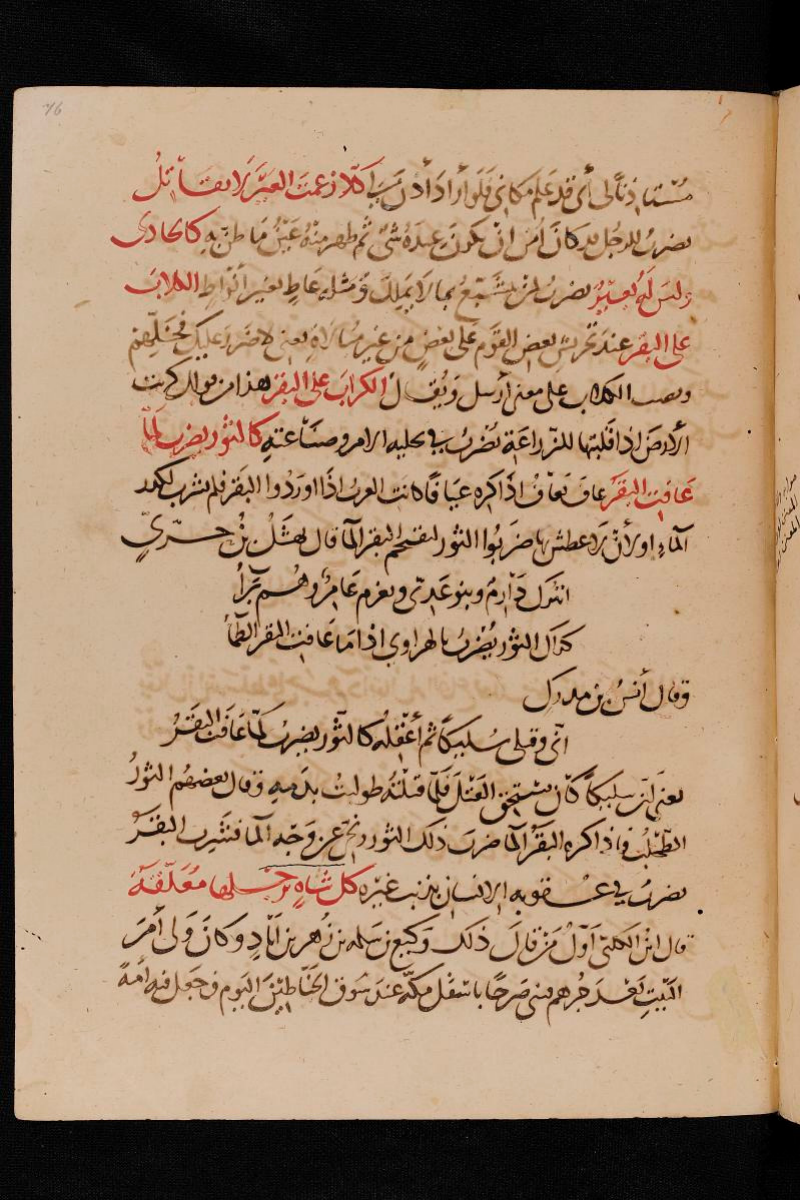 76
مستاذنا لى أى قد علم مكانى فلو أراد أذن لى كلا زعمت العير لا تقاتل
يضرب للرجل قد كان أمن ان يكون عنده شى ثم ظهر منه غير ما ظن به كالحادى
وليس له بعير يضرب لمن يتشبع بما لا يملك ومثله عاط بغير أنواط الكلاب
على البقر عند تحريش بعض القوم على بعض من غير مبالاة يعنى لا ضرر عليك فخلهم
ونصب الكلاب على معنى أرسل ويقال الكراب على البقر هذا من قولك كربت
الأرض اذا قلبتها للزراعة يضرب فى تخليه الامرو صناعته كالثور يضرب لما
عافت البقر عاف يعاف اذا كره عيافا كانت العرب اذا اوردوا البقر فلم تشرب لكدر
الماء او لأن لا عطش بها ضربوا الثور ليقتحم البقر الما قال نهشل بن حرّىّ
اتترك دارم وبنو عدى وتغرم عامر وهم برآ
كذاك الثور يضرب بالهراوى اذا ما عافت البقر الظمآ
وقال أنس بن مدرك
انى وقتلى سليكا ثم أعقله كالثور يضرب لما عافت البقر
يعنى ان سليكا كان يستحق القتل فلما قتلته طولبت بدمه وقال بعضهم الثور
الطحلب فاذا كره البقر الما ضرب ذلك الثور ونحى عن وجه الما فتشرب البقر
يضرب فى عقوبه الانسان بذنب غيره كل شاة برجلها معلقة
قال ابن الكلبى أول من قال ذلك وكيع بن سلمه بن زهر بن اياد وكان ولى أمر
البيت بعد جرهم فبنى صرحا باسفل مكة عند سوق الخياطين اليوم وجعل فيه أمة